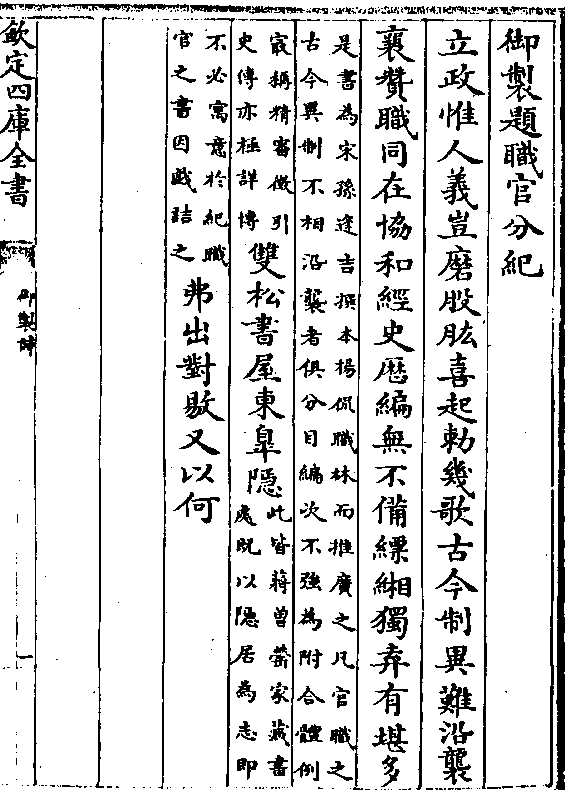 御製題職官分紀
立政惟人義豈磨股肱喜起勅幾歌古今制異難沿襲
襄賛職同在協和經史厯編無不備縹緗獨弆有堪多
是書為宋孫逢吉撰本楊侃職林而推廣之凡官職之
古今異制不相沿襲者俱分目編次不強為附合體例
㝡稱精審徵引
史傳亦極詳博
雙松書屋東臯隠
此皆蔣曽罃家藏書
處既以隠居為志即
不必寓意於紀職
官之書因戯詰之
弗出對敭又以何
欽定四庫全書
御製詩
一